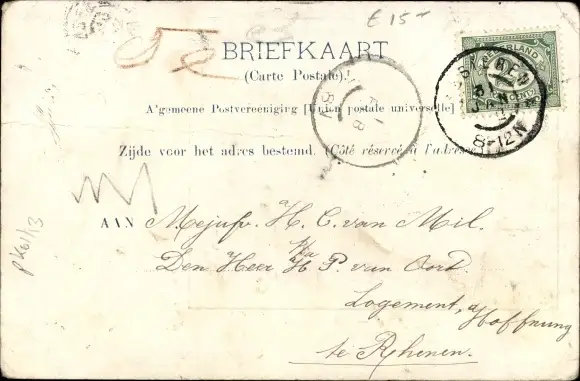 £ 15-
52
BRIEFKAART
(Carte Postale).
Algemeene Postvereeniging [Union postale universelle]
Zijde voor het adres bestemd. (Côté réservé à l'adresse
8-12 N
AAN Mejufv. H. C. van Mil.
p/a
Den Heer H. P. van Oort.
Logement, Hoffnung
te Rhenen.